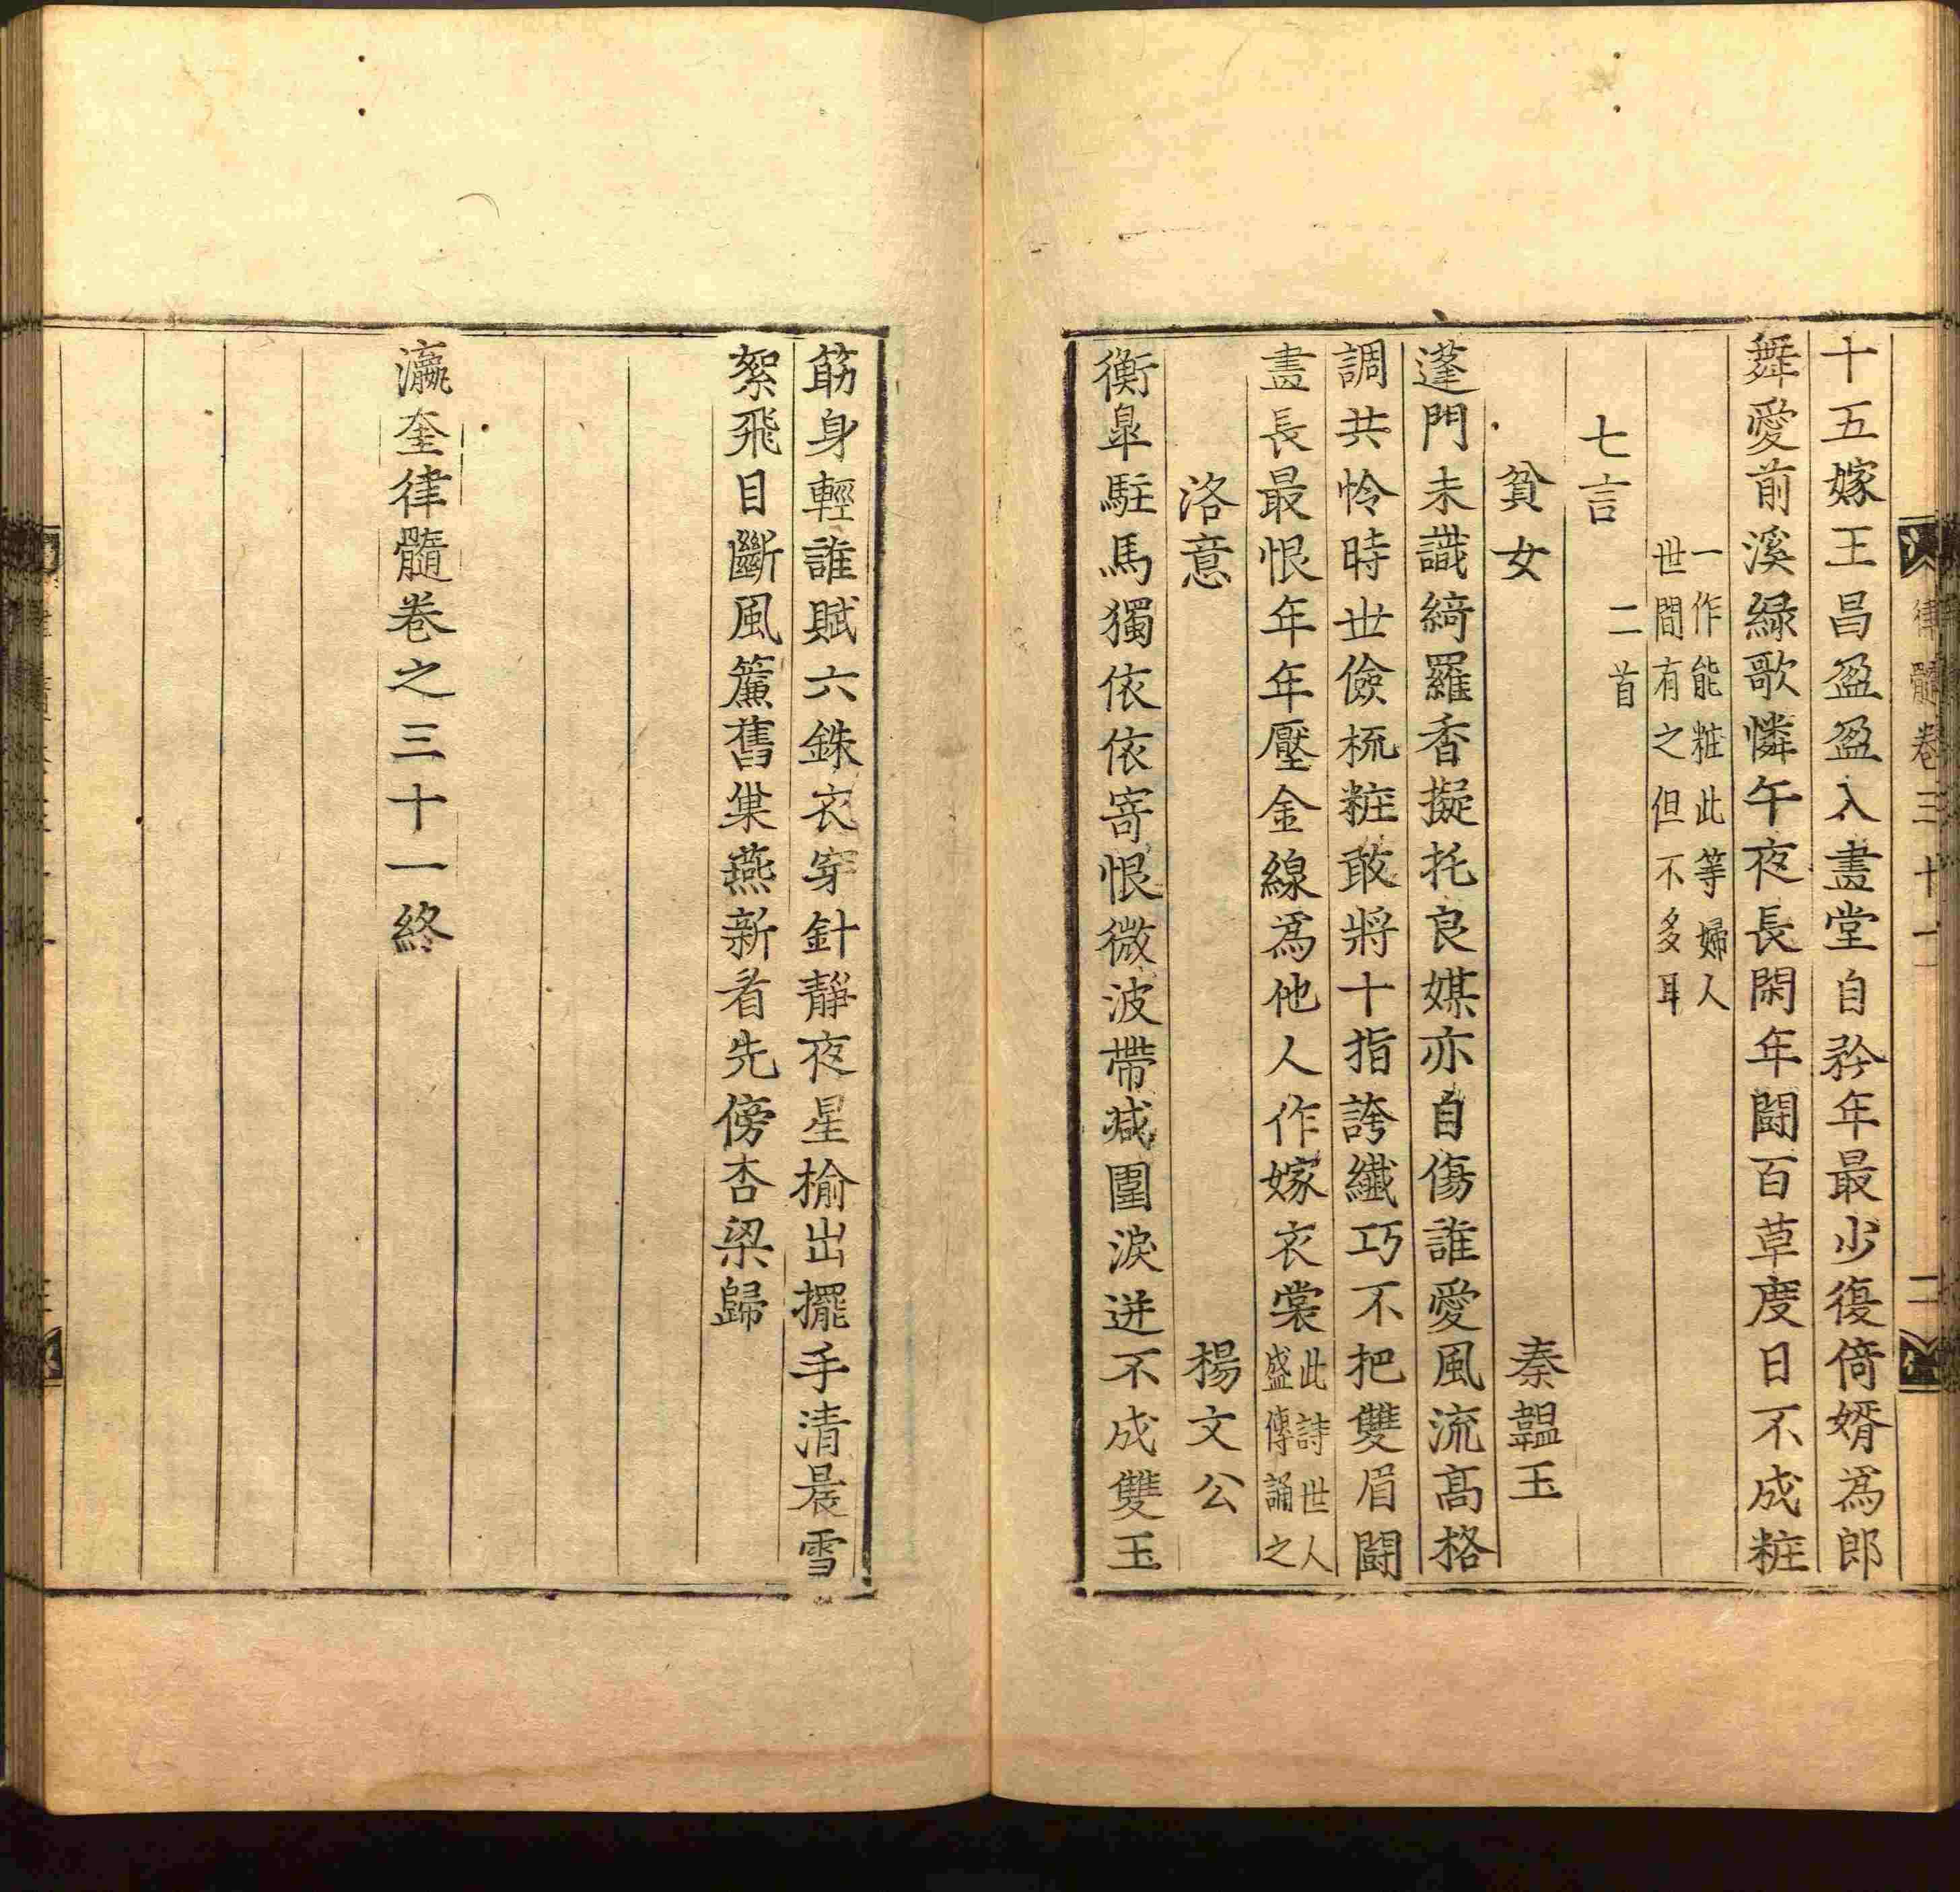 律髓卷三十一
二
十五嫁王昌盈盈入畫堂自矜年最少復倚婿爲郎
舞愛前溪綠歌憐午夜長閑年鬪百草度日不成粧
一作能粧此等婦人
世間有之但不多耳
七言 二首
貧女 秦韞玉
蓬門未識綺羅香擬托良媒亦自傷誰愛風流高格
調共怜時世儉梳粧敢將十指誇纖巧不把雙眉鬪
畫長最恨年年壓金線爲他人作嫁衣裳此詩世人
盛傳誦之
洛意 楊文公
衡皐駐馬獨依依寄恨微波帶減圍淚迸不成雙玉
筯身輕誰賦六銖衣穿針靜夜星榆出擺手清晨雪
絮飛目斷風簾舊巢燕新看先傍杏梁歸
瀛奎律髓卷之三十一終